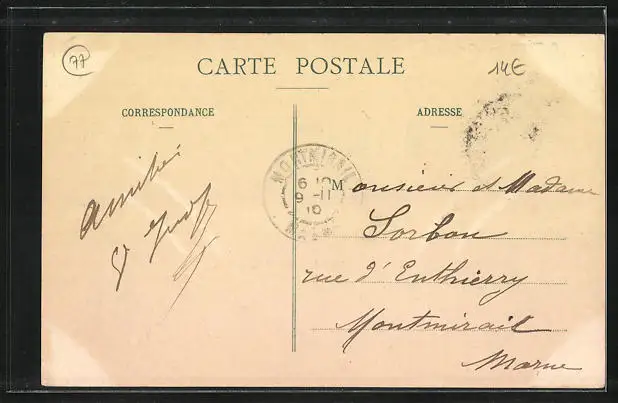 77
CARTE POSTALE
14€
CORRESPONDANCE
ADRESSE
MONTMIRAIL
6
9 - 11
10
Monsieur et Madame
Sorbon
rue d'Enthierry
Montmirail
Marne
Amitiés